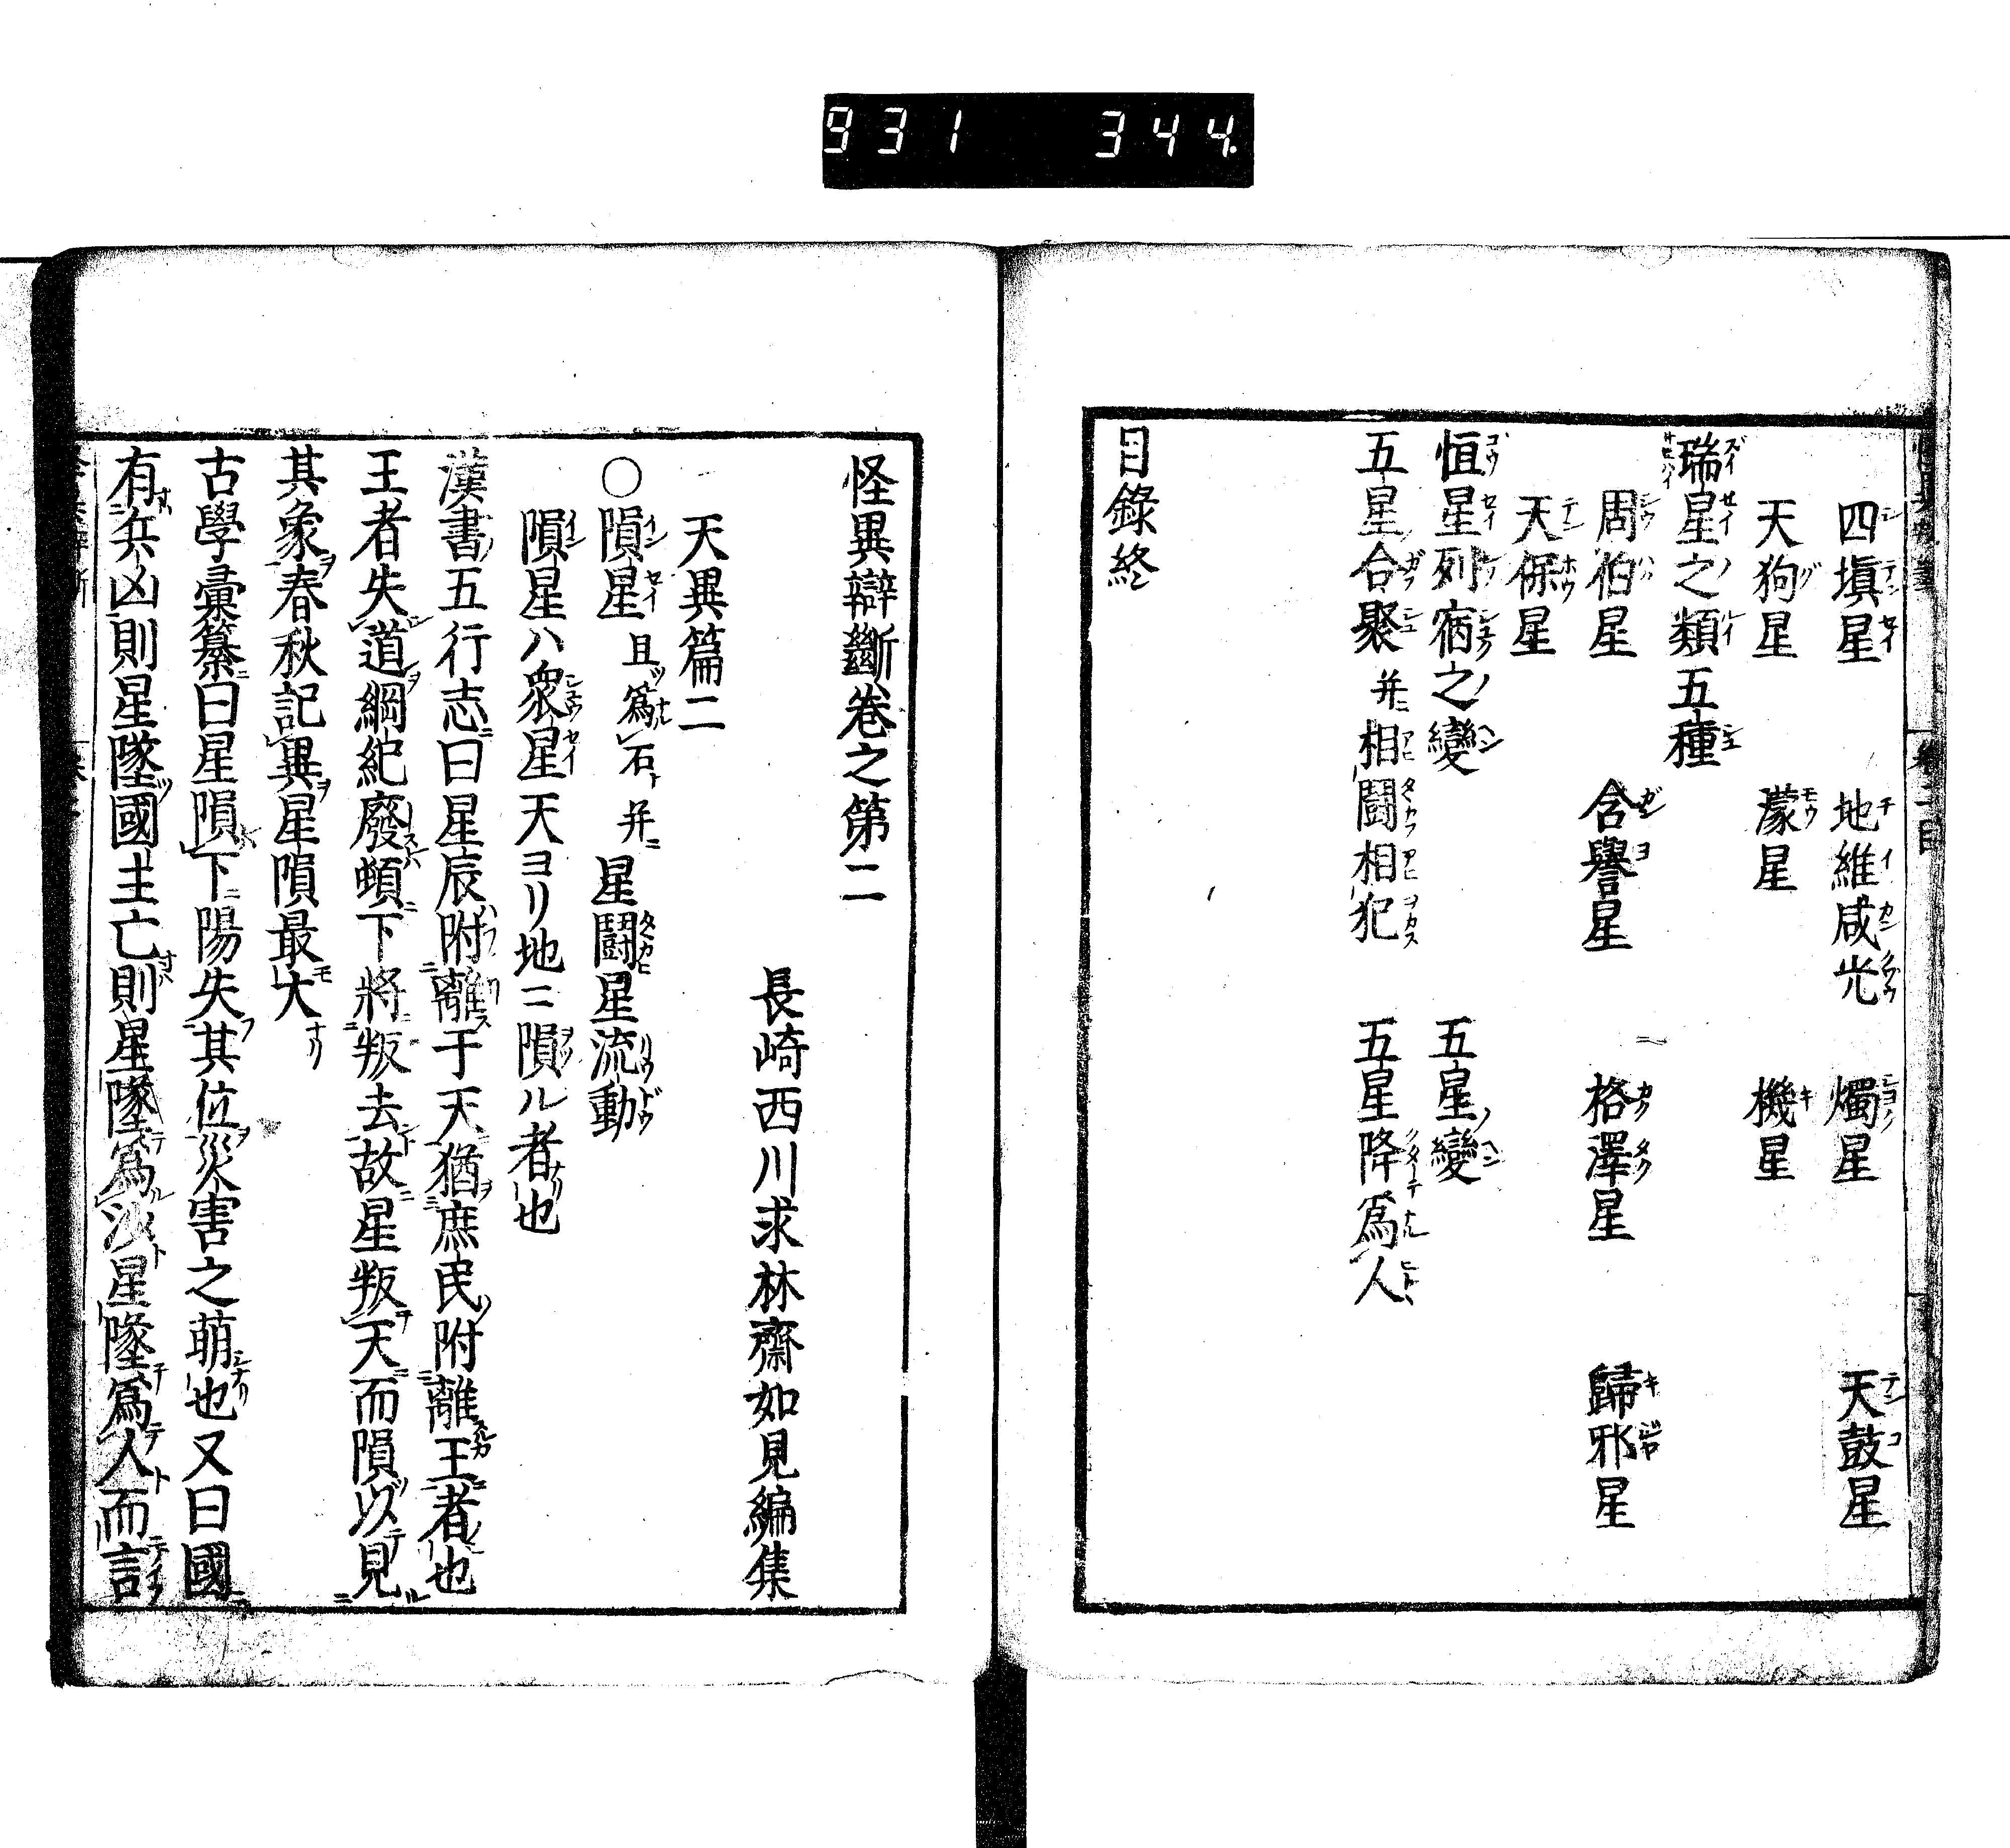 931 344.
四塡星 地維咸光 燭星 天鼓星
天狗星 濛星 機星
瑞星之類五種
周伯星 含譽星 格澤星 歸邪星
天保星
恒星列宿之變 五星變
五星合聚 并相鬪相犯 五星降爲人
目錄終
怪異辯斷卷之第二
長崎西川求林齋如見編集
天異篇二
〇隕星 且爲石 并 星鬪星流動
隕星ハ衆星天ヨリ地ニ隕ル者也
漢書五行志曰星辰附離于天猶庶民附離王者也
王者失道綱紀廢頓下將叛去故星叛天而隕以見
其象春秋記異星隕最大
古學彙纂曰星隕下陽失其位災害之萌也又曰國
有兵凶則星墜國主亡則星墜爲沙星墜爲人而言